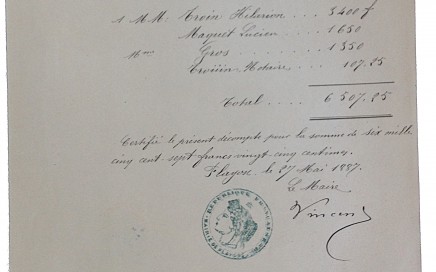 à MM. Troin Hilarion . . . 3400 f
Maquet Lucien . . . 1650
Mme Gros . . . . 1350
Notaire . . . 107.25
Total . . . . 6507.25
Certifié le présent décompte pour la somme de six mille
cinq cent sept francs vingt cinq centimes.
Flayosc le 27 Mai 1887
Le Maire
Vincent
RÉPUBLIQUE FRANÇAISE